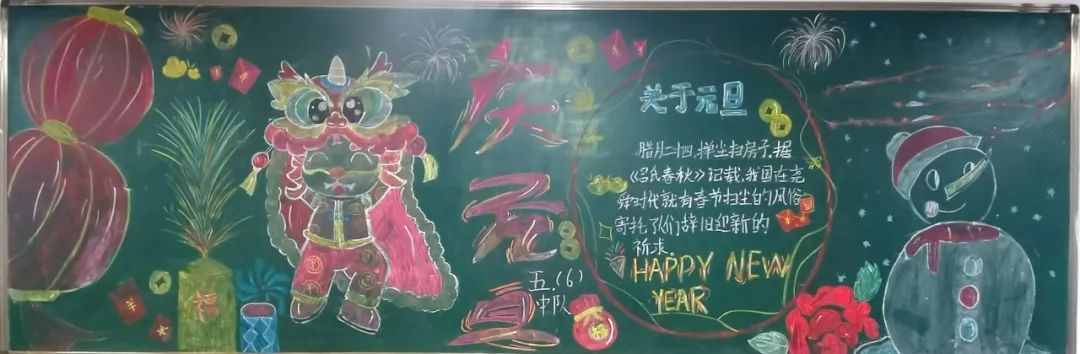 庆元旦
五.(6)
中队
关于元旦
腊月二十四,掸尘扫房子,据
《吕氏春秋》记载,我国在尧
舜时代就有春节扫尘的风俗
寄托了人们辞旧迎新的
祈求
HAPPY NEW
YEAR
福